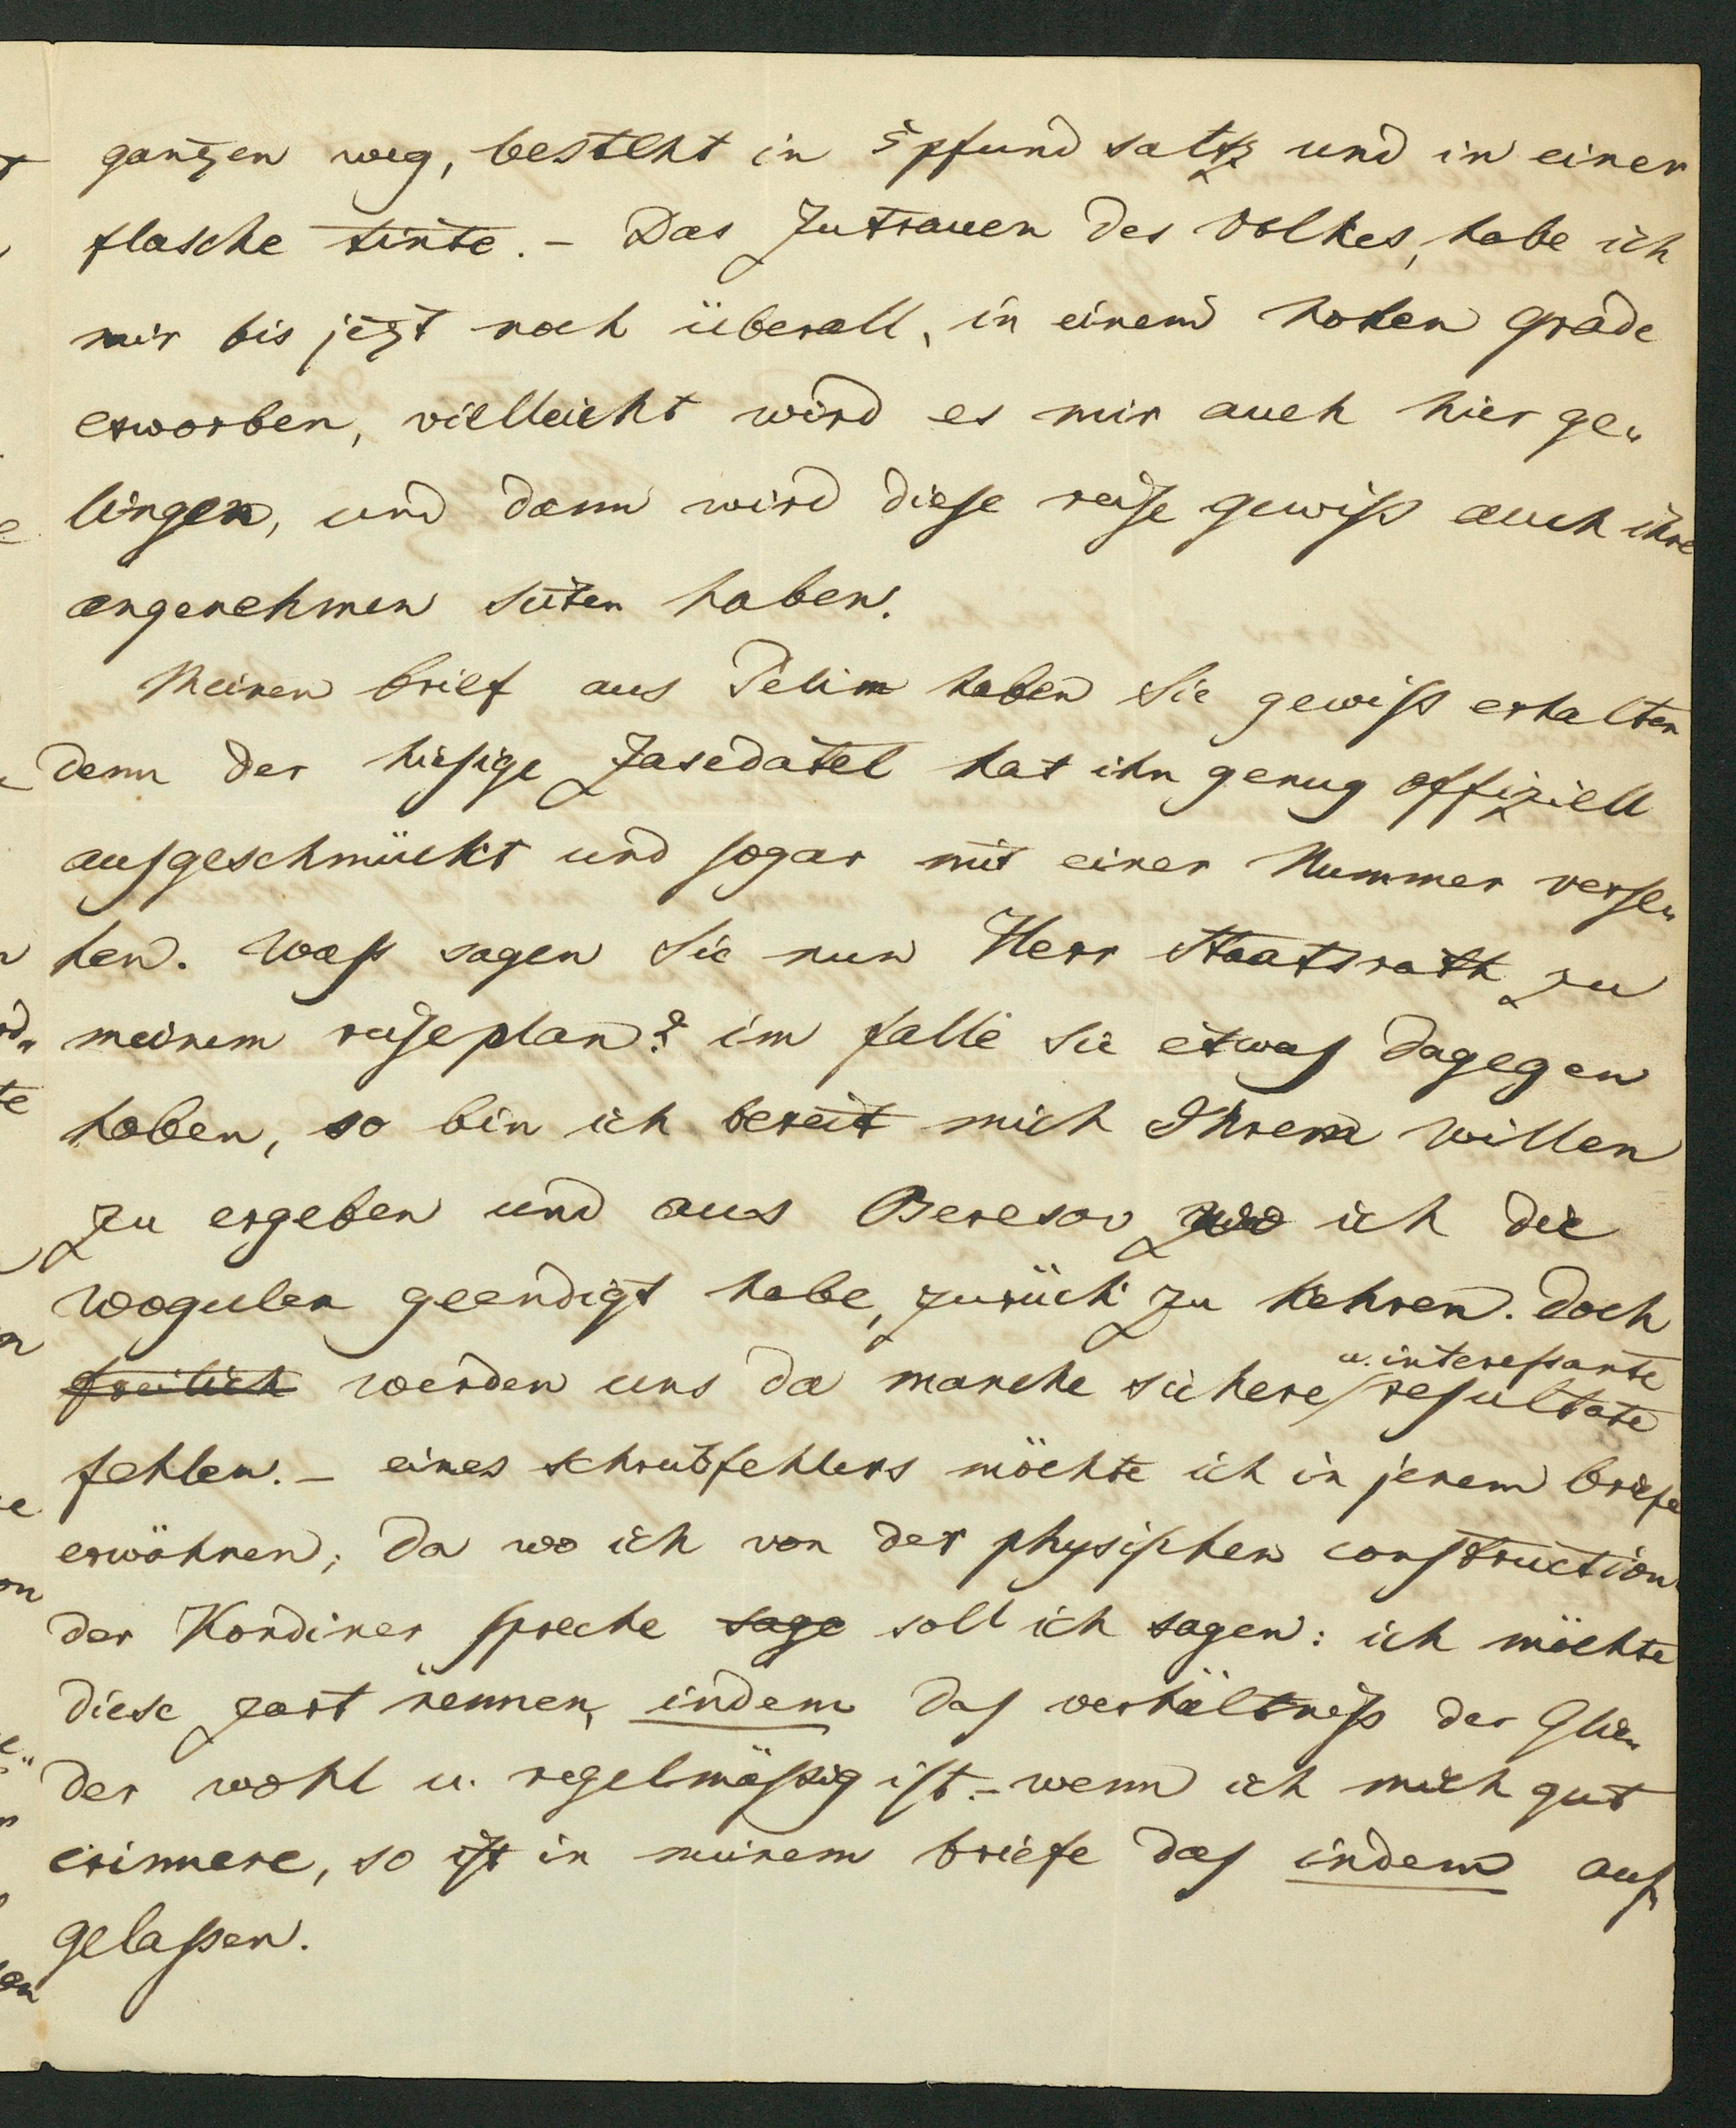 ganzen weg, besteht in 5 pfund saltz und in einer
flasche tinte. – Das Zutrauen des Volkes, habe ich
mir bis jezt noch überall, in einem hohen Grade
erworben, vielleicht wird es mir auch hier ge„
lingen, und dann wird diese reise gewiß auch ihre
angenehmen seiten haben.
Meinen brief aus Pelim haben Sie gewiß erhalten
denn der hiesige Zasedatel hat ihn genug offiziell
ausgeschmückt und sogar mit einer Nummer verse„
hen. Waß sagen Sie nun Herr Staatsrath zu
meinem reiseplan? im falle Sie etwas dagegen
haben, so bin ich bereit mich Ihrem willen
zu ergeben und aus Beresov wo ich die
Wogulen geendigt habe, zurück zu kehren. doch
freilich werden uns da manche sichere u. interessante resultate
fehlen. – eines schreibfehlers möchte ich in jenem briefe
erwähnen; da wo ich von der physischen construction
der Kondiner spreche sage soll ich sagen: ich möchte
diese zart nennen, indem das verhältniß der Glie„
der wohl u. regelmäßig ist. – wenn ich mich gut
erinnere, so ist in meinem briefe das indem aus„
gelassen.